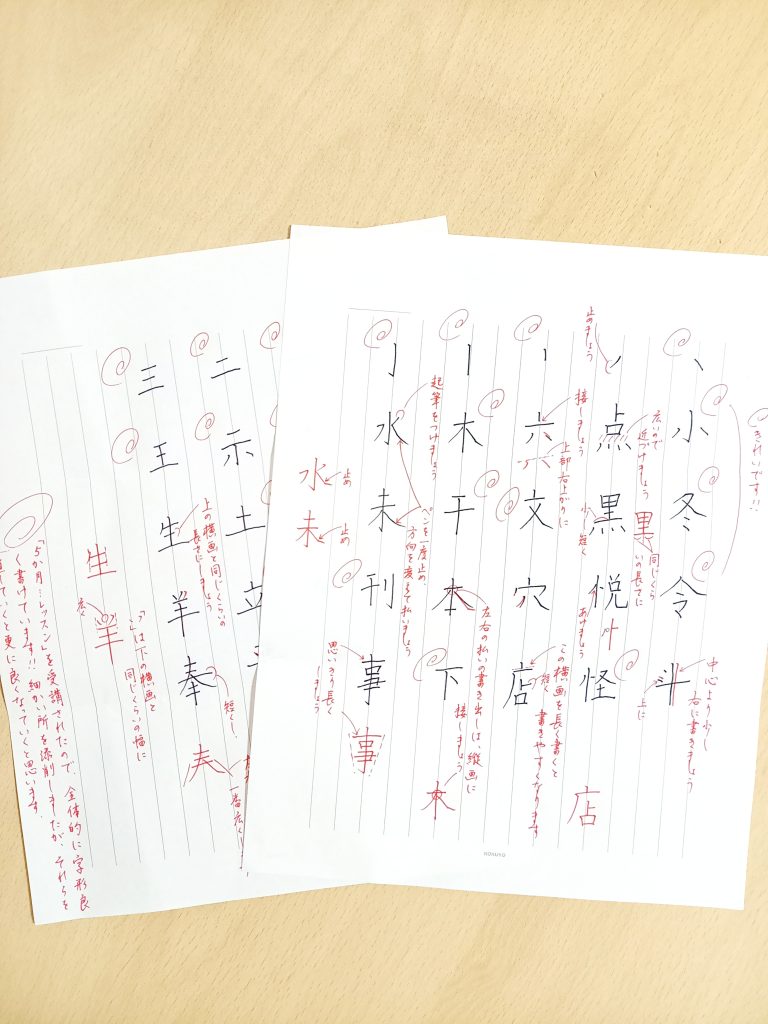 きれいです!!
丶
小
冬
令
斗
中心より少し
右に書きましょう
上に
止めましょう
ノ
点
黒
悦
怪
広いので
近づけましょう
少し短く
黒
同じくら
いの長さに
あけましょう
店
丶
六
文
穴
店
接しましょう
上部右上がりに
この横画を長く書くと
書きやすくなります
短く
丨
木
干
本
下
左右の払いの書き出しは、縦画に
接しましょう
本
亅
水
未
刊
事
起筆をつけましょう
ペンを一度止め、
方向を変えて払いましょう
水
止め
未
止め
思いきり長く
しましょう
事
KOKUYO
二
示
土
立
三
王
生
羊
奉
上の横画と同じくらいの
長さにしましょう
短くし、
一番広くしましょう
夫
生
羊
広く
は下の横画と
同じくらいの幅に
「5か月…レッスン」を受講されたので、全体的に字形良
く書けています!!細かい所を添削しましたが、それらを
していくと更に良くなっていくと思います。